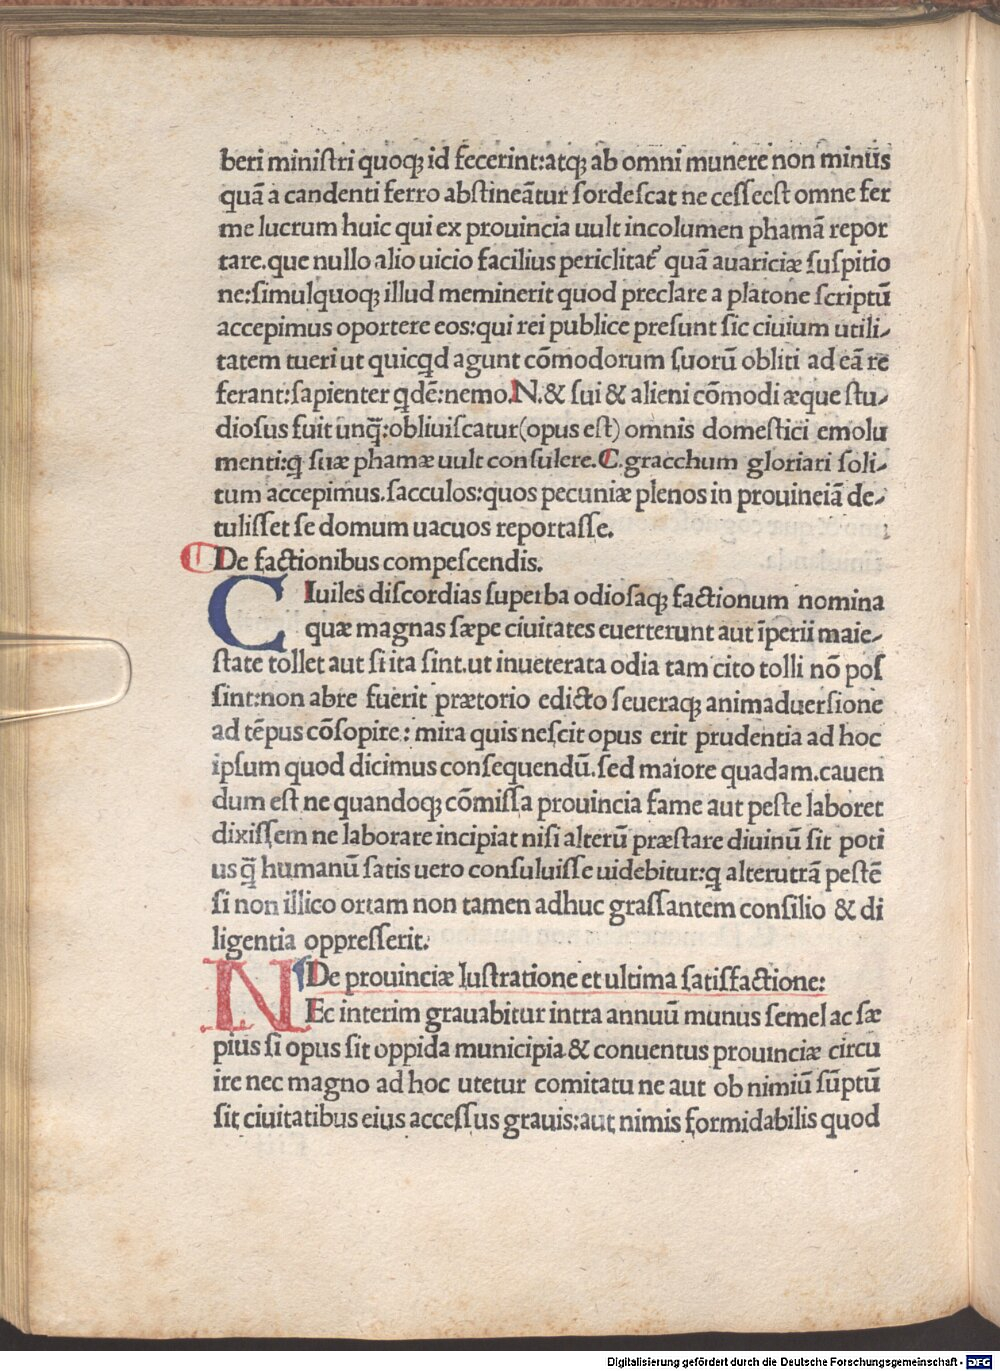 beri miniſtri quoqꝫ id fecerint:atqꝫ ab omni munere non minus
quā a candenti ferro abſtineātur ſordeſcat ne ceſſe eſt omne fer
me lucrum huic qui ex prouincia uult incolumen phamā repor
tare.que nullo alio uicio facilius periclitat᷑ quā auariciæ ſuſpitio
ne:ſimulquoqꝫ illud meminerit quod preclare a platone ſcriptū
accepimus oportere eos:qui rei publice preſunt ſic ciuium utili⸗
tatem tueri ut quicq̄d agunt cōmodorum ſuorū obliti ad eā re
ferant:ſapienter q̄dē:nemo.N.& ſui & alieni cōmodi æque ſtu⸗
dioſus fuit unq̄:obliuiſcatur(opus eſt) omnis domeſtici emolu
menti:q̄ ſuæ phamæ uult conſulere.C.gracchum gloriari ſoli⸗
tum accepimus.ſacculos:quos pecuniæ plenos in prouinciā de⸗
tuliſſet ſe domum uacuos reportaſſe.
De factionibus compeſcendis.
CIuiles diſcordias ſuperba odioſaqꝫ factionum nomina
quæ magnas ſæpe ciuitates euerterunt aut īperii maie⸗
ſtate tollet aut ſi ita ſint.ut inueterata odia tam cito tolli nō poſ
ſint:non abre fuerit prætorio edicto ſeueraqꝫ animaduerſione
ad tēpus cōſopire: mira quis neſcit opus erit prudentia ad hoc
ipſum quod dicimus conſequendū.ſed maiore quadam.cauen
dum eſt ne quandoqꝫ cōmiſſa prouincia fame aut peſte laboret
dixiſſem ne laborare incipiat niſi alterū præſtare diuinū ſit poti
us q̄ humanū ſatis uero conſuluiſſe uidebitur:q̄ alterutrā peſtē
ſi non illico ortam non tamen adhuc graſſantem conſilio & di
ligentia oppreſſerit.
De prouinciæ luſtratione et ultima ſatiſfactione:
NEc interim grauabitur intra annuū munus ſemel ac ſæ
pius ſi opus ſit oppida municipia & conuentus prouinciæ circu
ire nec magno ad hoc utetur comitatu ne aut ob nimiū ſūptū
ſit ciuitatibus eius acceſſus grauis:aut nimis formidabilis quod
Digitalisierung gefördert durch die Deutsche Forschungsgemeinschaft - DFG